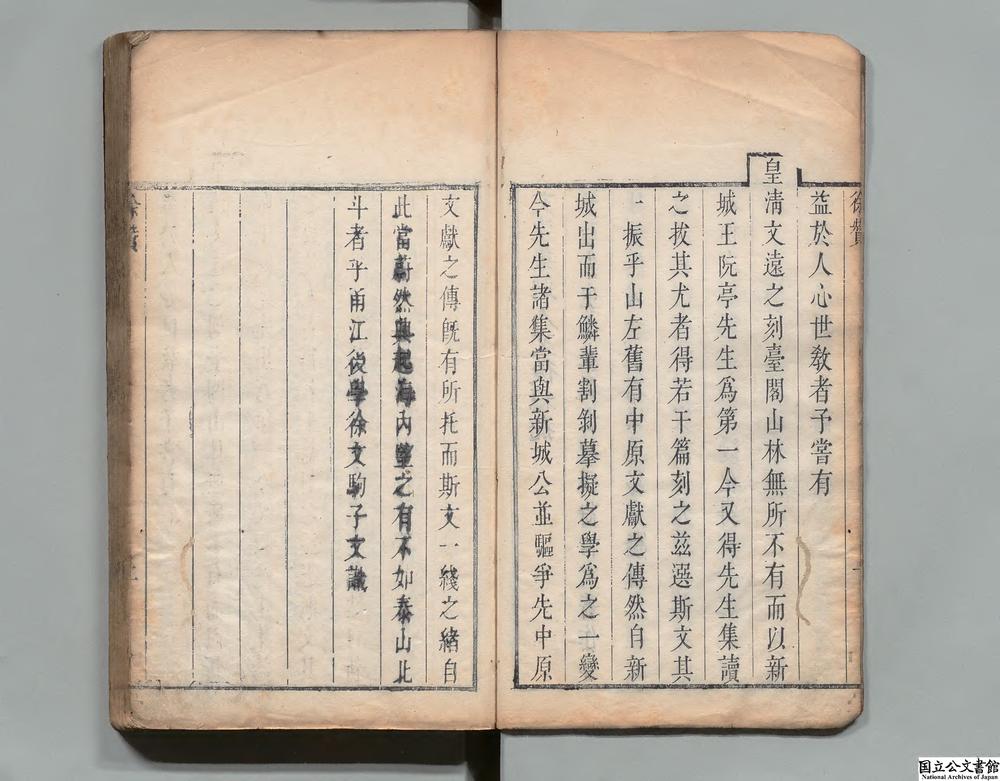 徐贊
益於人心世敎者予嘗有
皇淸文遠之刻臺閣山林無所不有而以新
城王阮亭先生爲第一今又得先生集讀
之拔其尤者得若干篇刻之兹選斯文其
一振乎山左舊有中原文獻之傳然自新
城出而于鱗輩割剝摹擬之學爲之一變
今先生諸集當與新城公並驅爭先中原
文獻之傳旣有所托而斯文一綫之緒自
此當蔚然興起海內望之有不如泰山北
斗者乎甬江後學徐文駒子文識
国立公文書館
National Archives of Japan